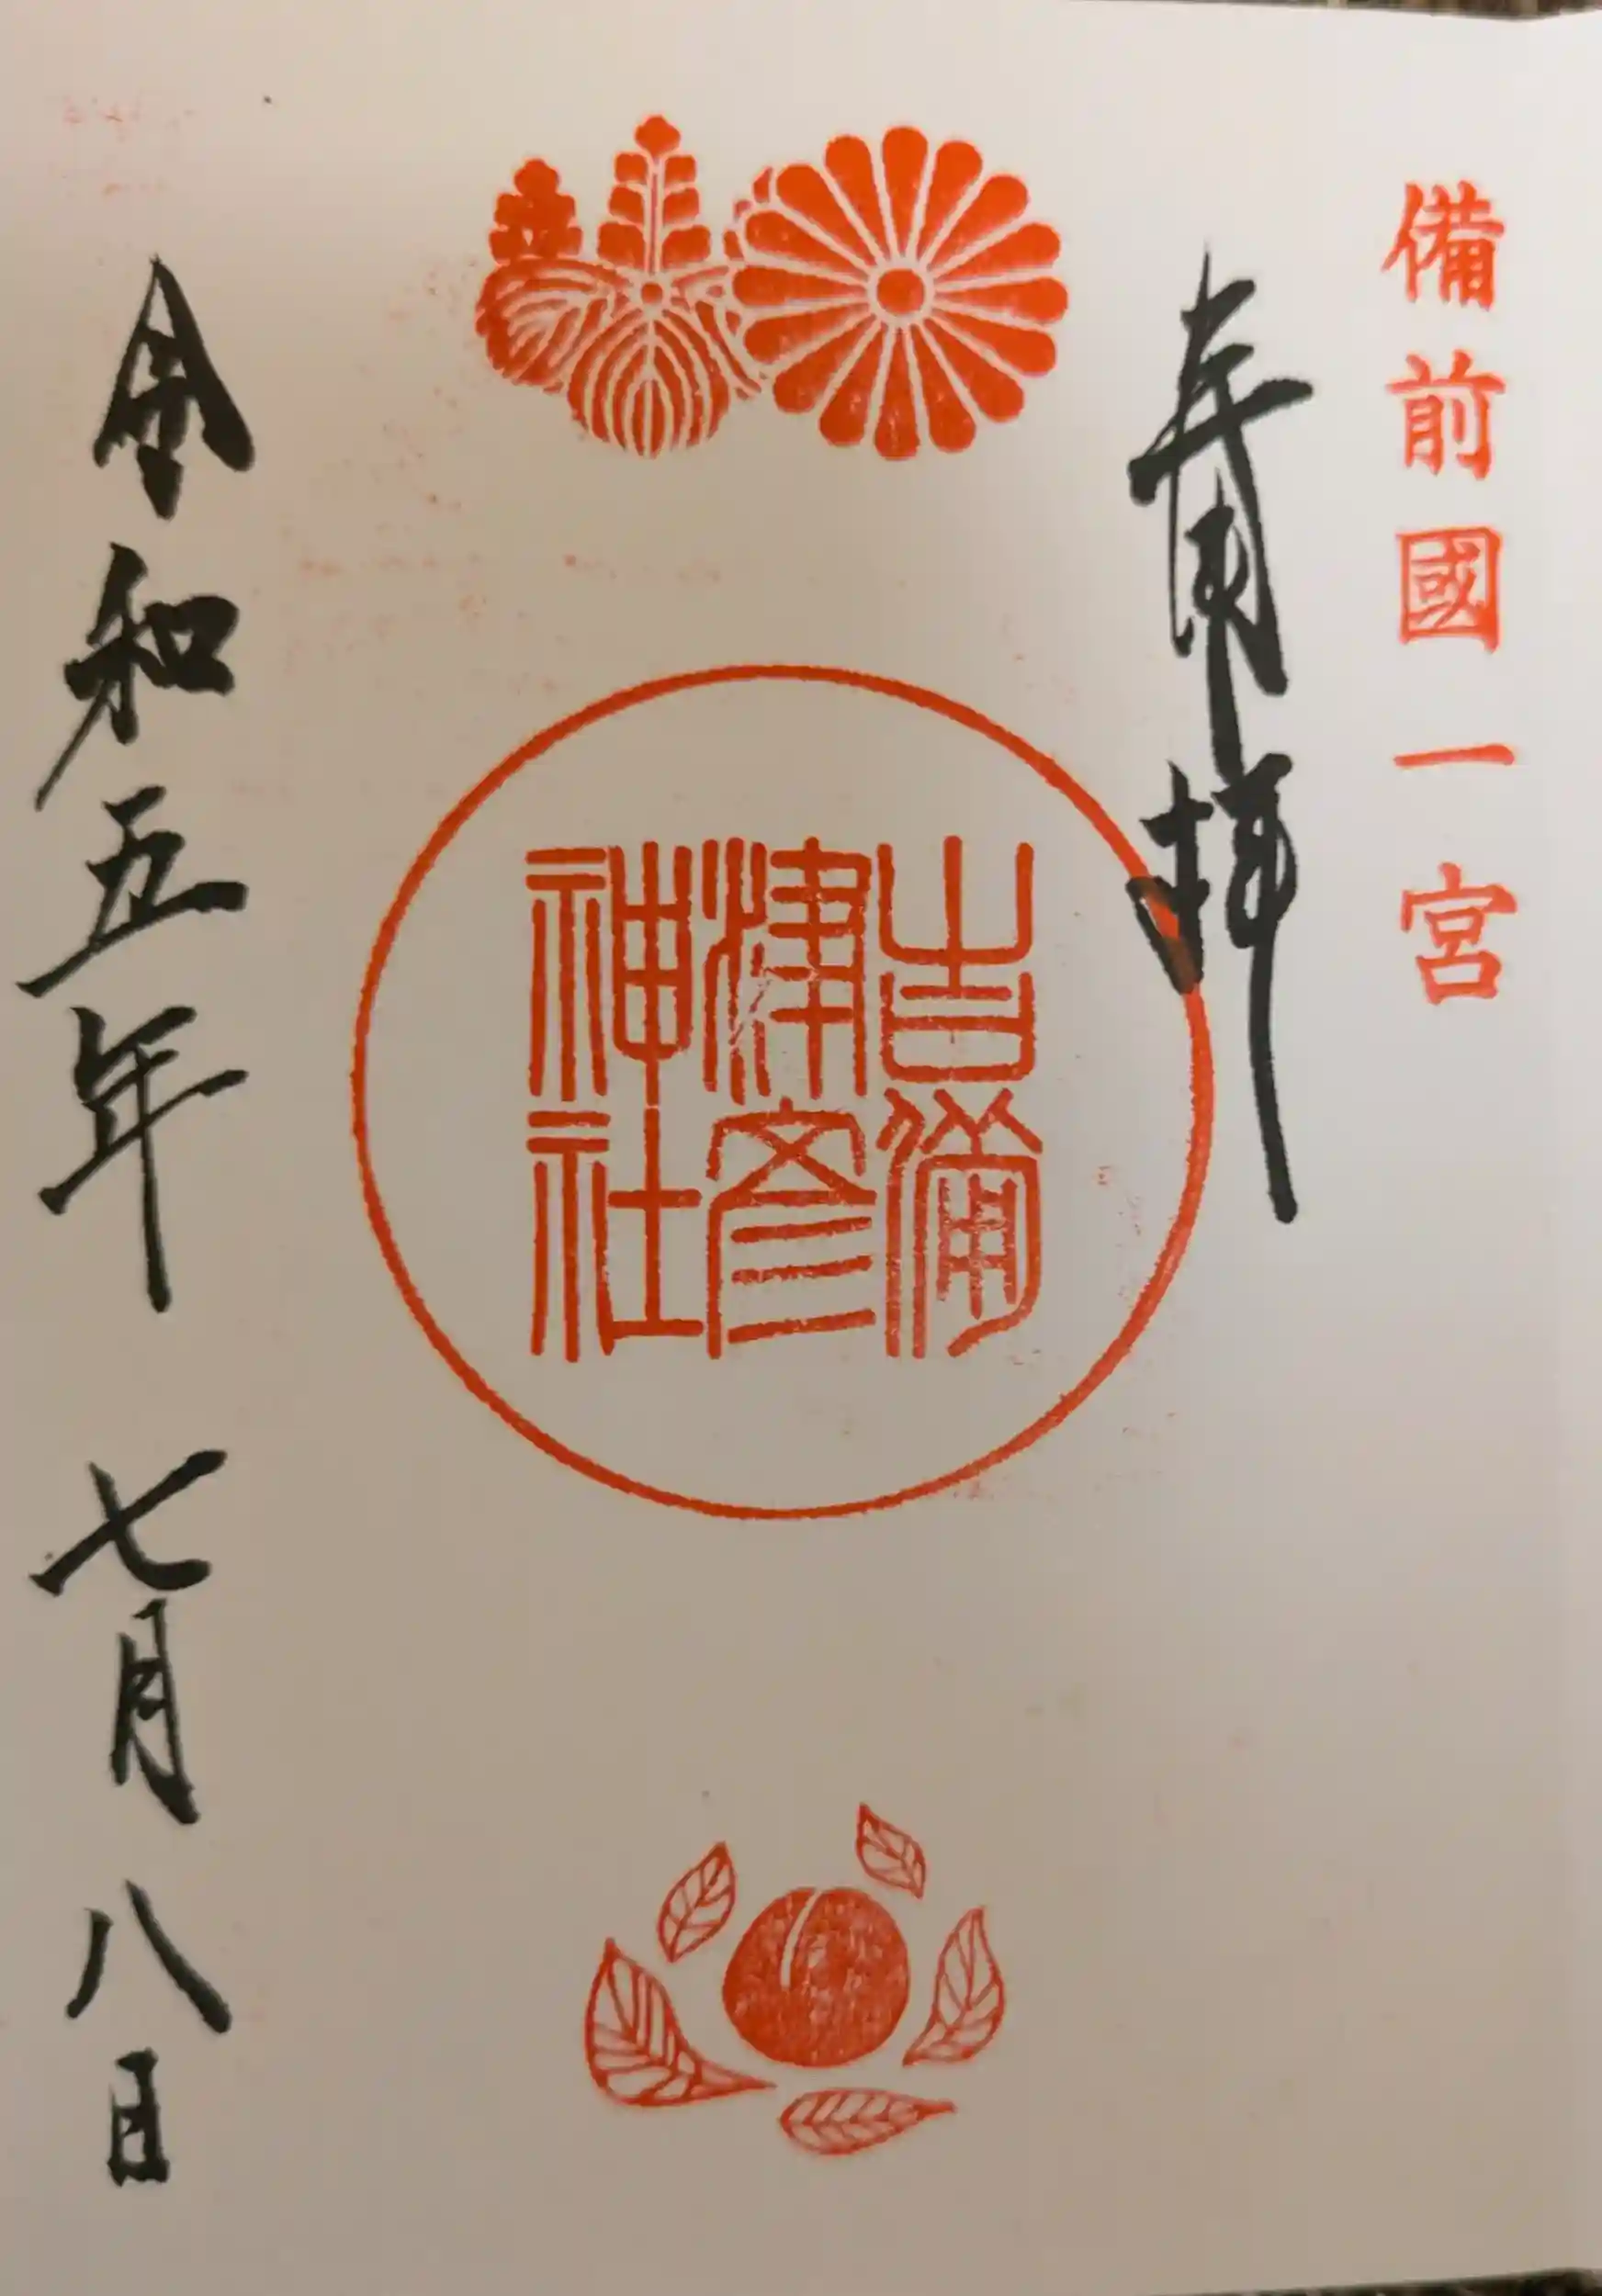 備前國一宮
奉拜
吉備
津彦
神社
令和五年 七月八日